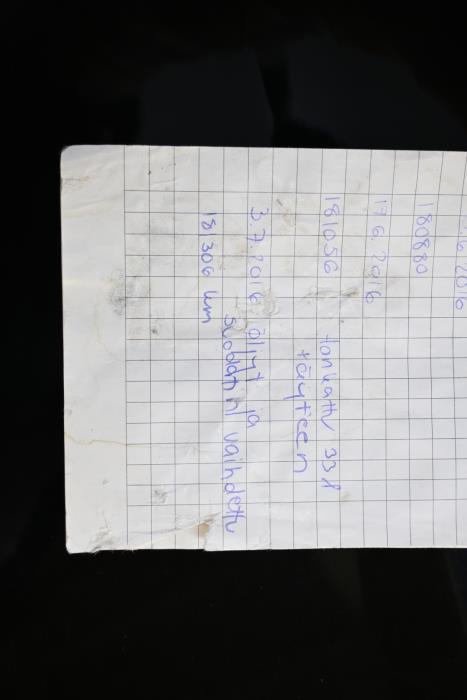 .6.2016
180880
17.6.2016
181056 tankattu 33 l
täyteen
3.7.2016 öljyt ja
suodatin vaihdettu
181306 km